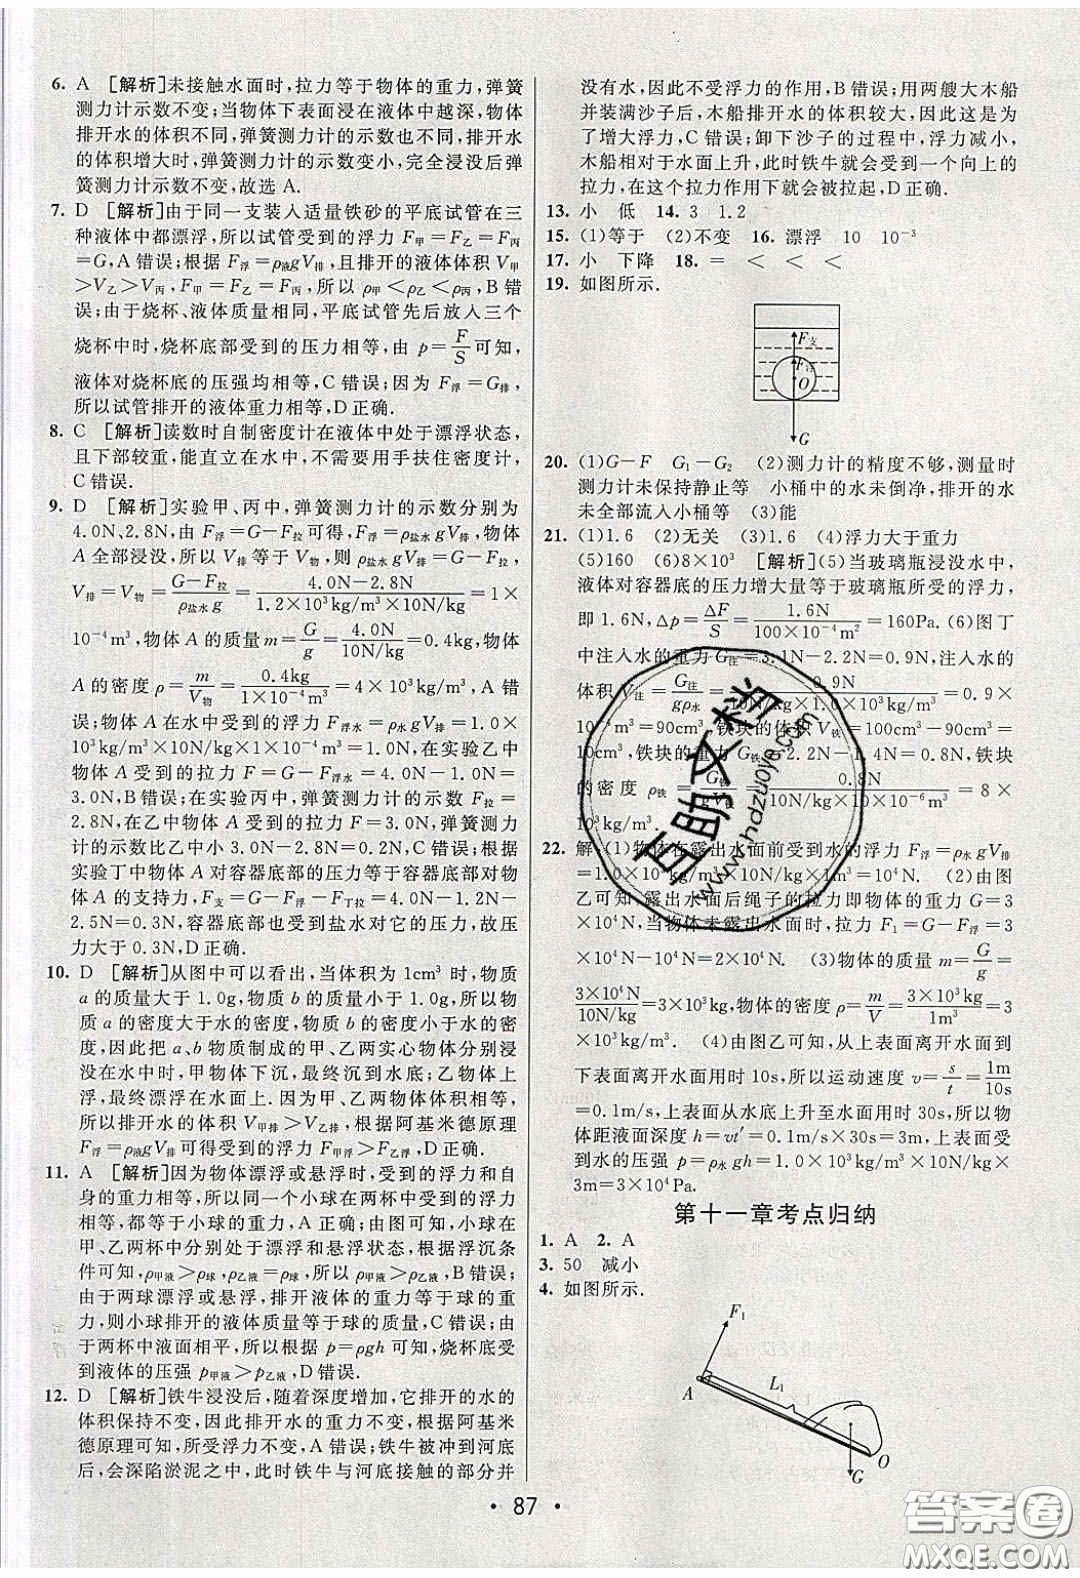 6. A [解析]未接触水面时,拉力等于物体的重力,弹簧
测力计示数不变;当物体下表面浸在液体中越深,物体
排开水的体积不同,弹簧测力计的示数也不同,排开水
的体积增大时,弹簧测力计的示数变小,完全浸没后弹
簧测力计示数不变,故选A.
7. D [解析]由于同一支装入适量铁砂的平底试管在三
种液体中都漂浮,所以试管受到的浮力F甲=F乙=F丙
=G,A错误;根据F浮=ρ液gV排,且排开的液体体积V甲
>V乙>V丙,F甲=F乙=F丙,所以ρ甲<ρ乙<ρ丙,B错
误;由于烧杯、液体质量相同,平底试管先后放入三个
烧杯中时,烧杯底部受到的压力相等,由p=F/S可知,
液体对烧杯底的压强均相等,C错误;因为F浮=G排,
所以试管排开的液体重力相等,D正确.
8. C [解析]读数时自制密度计在液体中处于漂浮状态,
且下部较重,能直立在水中,不需要用手扶住密度计,
C错误.
9. D [解析]实验甲、丙中,弹簧测力计的示数分别为
4.0N、2.8N,由F浮=G-F拉可得,F浮=ρ盐水gV排,物体
A全部浸没,所以V排等于V物,则ρ盐水gV排=G-F拉,
V排=V物=(G-F拉)/(ρ盐水g)=(4.0N-2.8N)/(1.2×10³kg/m³×10N/kg)=1×
10⁻⁴m³,物体A的质量m=G/g=4.0N/(10N/kg)=0.4kg,物体
A的密度ρ=m/V物=0.4kg/(1×10⁻⁴m³)=4×10³kg/m³,A错
误;物体A在水中受到的浮力F浮水=ρ水gV排=1.0×
10³kg/m³×10N/kg×1×10⁻⁴m³=1.0N,在实验乙中
物体A受到的拉力F=G-F浮水=4.0N-1.0N=
3.0N,B错误;在实验丙中,弹簧测力计的示数F拉=
2.8N,在乙中物体A受到的拉力F=3.0N,弹簧测力
计的示数比乙中小3.0N-2.8N=0.2N,C错误;根据
实验丁中物体A对容器底部的压力等于容器底部对物
体A的支持力,F支=G-F浮-F丁拉=4.0N-1.2N-
2.5N=0.3N,容器底部也受到盐水对它的压力,故压
力大于0.3N,D正确.
10. D [解析]从图中可以看出,当体积为1cm³时,物质
a的质量大于1.0g,物质b的质量小于1.0g,所以物
质a的密度大于水的密度,物质b的密度小于水的密
度,因此把a、b物质制成的甲、乙两实心物体分别浸
没在水中时,甲物体下沉,最终沉到水底;乙物体上
浮,最终漂浮在水面上.因甲、乙两物体体积相等,
所以排开水的体积V甲排>V乙排,根据阿基米德原理
F浮=ρ液gV排可得受到的浮力F甲浮>F乙浮,D正确.
11. A [解析]因为物体漂浮或悬浮时,受到的浮力和自
身的重力相等,所以同一个小球在两杯中受到的浮力
大小相等,都等于小球的重力,A正确;由图知,小球在
甲、乙两杯中分别处于漂浮和悬浮状态,根据浮沉条
件可知,ρ甲液>ρ球,ρ乙液=ρ球,所以ρ甲液>ρ乙液,B错误;
由于两球漂浮或悬浮,排开液体的重力等于球的重
力,则小球排开的液体质量等于球的质量,C错误;由
于两杯中液面相平,根据p=ρgh可知,烧杯底部受
到液体的压强p甲液>p乙液,D错误.
12. D [解析]铁牛浸没后,随着深度增加,它排开的水的
体积保持不变,因此排开水的重力不变,根据阿基米
德原理可知,所受浮力不变,A错误;铁牛沉到河底
后,会深陷淤泥之中,此时铁牛与河底接触的部分并
没有水,因此不受浮力的作用,B错误;用两艘大木船
并装满沙子时,木船排开水的体积较大,因此这是为
了增大浮力,C错误;卸下沙子的过程中,浮力减小,
木船相对于水面上升,此时铁牛就会受到一个向上的
拉力,在这个拉力作用下就会被拉起,D正确.
13. 小 低 14. 3 1.2
15. (1)等于 (2)不变 16. 漂浮 10 10⁻³
17. 小 下降 18. = < < <
19. 如图所示.
F支
F浮
O
G
20. (1)G-F G₁-G₂ (2)测力计的精度不够,测量时
测力计未保持静止等 小桶中的水未倒净,排开的水
未全部流入小桶等 (3)能
21. (1)1.6 (2)无关 (3)1.6 (4)浮力大于重力
(5)160 (6)8×10³ [解析](5)当玻璃瓶浸没水中,
液体对容器底的压力增大量等于玻璃瓶所受的浮力,
即1.6N,Δp=ΔF/S=1.6N/(100×10⁻⁴m²)=160Pa.(6)图丁
中注入水的重力G注=3.1N-2.2N=0.9N,注入水的
体积V注=G注/(gρ水)=0.9N/(10N/kg×1.0×10³kg/m³)=0.9×
10⁻⁴m³=90cm³,铁块的体积V铁=100cm³-90cm³=
10cm³,铁块的重力G铁=2.2N-1.4N=0.8N,铁块
的密度ρ铁=G铁/=0.8N/(10N/kg×10×10⁻⁶m³)=8×
10³kg/m³.
22. 解:(1)物体在露出水面前受到水的浮力F浮=ρ水gV排
=1.0×10³kg/m³×10N/kg×1m³=10⁴N. (2)由图
乙可知,露出水面后绳子的拉力即物体的重力G=3×
10⁴N,当物体未露出水面时,拉力F₁=G-F浮=3×
10⁴N-10⁴N=2×10⁴N. (3)物体的质量m=G/g=
3×10⁴N/(10N/kg)=3×10³kg,物体的密度ρ=m/V=3×10³kg/1m³=3
×10³kg/m³. (4)由图乙可知,从上表面离开水面到
下表面离开水面用时10s,所以运动速度v=s/t=1m/10s
=0.1m/s,上表面从水底上升至水面用时30s,所以物
体距液面深度h=vt′=0.1m/s×30s=3m,上表面受
到水的压强p=ρ水gh=1.0×10³kg/m³×10N/kg×
3m=3×10⁴Pa.
第十一章考点归纳
1. A 2. A
3. 50 减小
4. 如图所示.
F₁
L₁
A
O
G
· 87 ·
互助文档
www.hdzuoye.com
答案圈
MXQE.COM